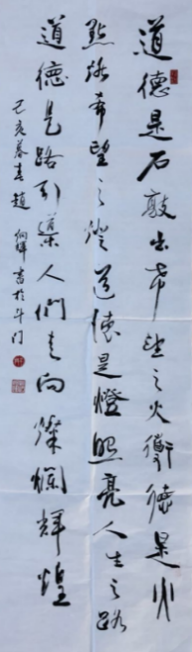 道德是石敲出希望之火道德是火
點燃希望之燈道德是燈照亮人生之路
道德是路引導人們走向燦爛輝煌
己亥暮春趙 書於斗门